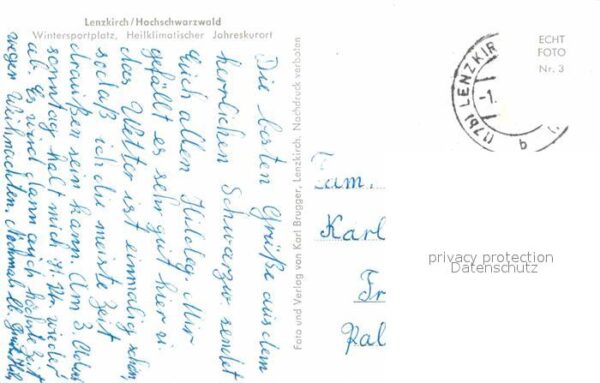 Lenzkirch/Hochschwarzwald
Wintersportplatz, Heilklimatischer Jahreskurort
Die besten Grüße aus dem
herrlichen Schwarzw. sendet
Euch allen Hildeg. Mir
gefällt es sehr gut hier u.
das Wetter ist einmalig schön,
sodaß ich die meiste Zeit
draußen sein kann. Am 3. Advent
sonntag holt mich Vr. wieder
ab. Es wird dann auch höchste Zeit
wegen Weihnachten. Nochmals lb. Grüße
Foto und Verlag von Karl Brugger, Lenzkirch. Nachdruck verboten
(17b) LENZKIR
ECHT
FOTO
Nr. 3
Fam.
Karl
Fr
Kal
privacy protection
Datenschutz